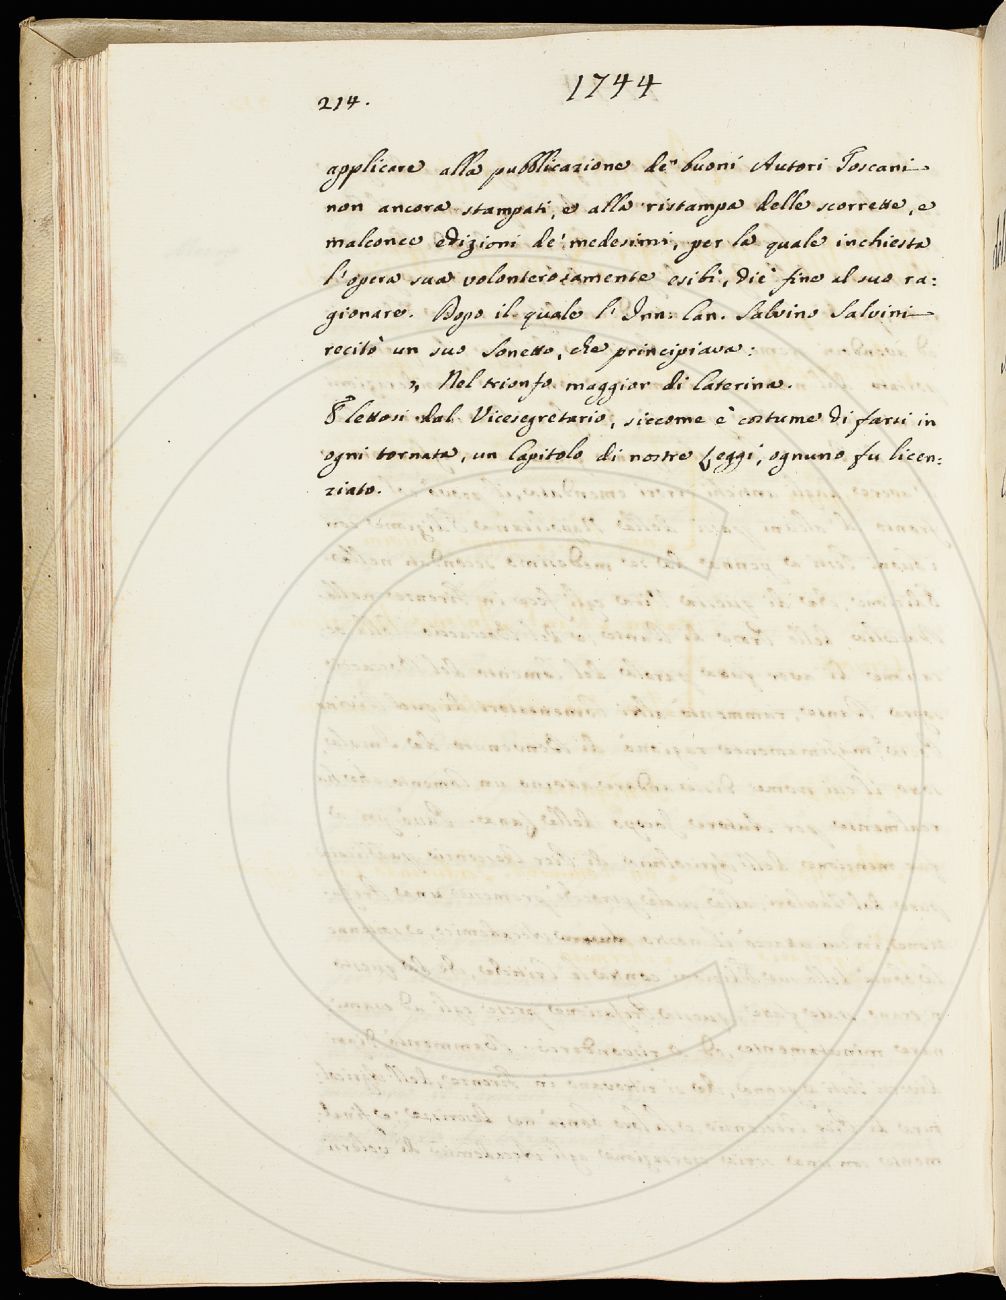 1744
214.
applicare alla pubblicazione de' buoni Autori Toscani
non ancora stampati, e alla ristampa delle scorrette, e
malconce edizioni de' medesimi, per la quale inchiesta
l'opera sua volonterosamente esibì, diè fine al suo ra=
gionare. Dopo il quale l'Inn: Can. Salvino Salvini
recitò un suo Sonetto, che principiava:
„ Nel trionfo maggior di Caterina.
E lettosi dal Vicesegretario, siccome è costume di farsi in
ogni tornata, un Capitolo di nostre Leggi, ognuno fu licen=
ziato.